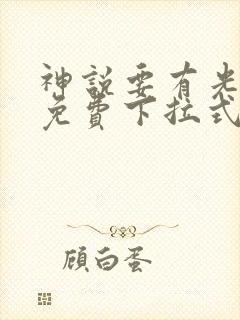 神説要有光
免費下拉式
顧白蛋